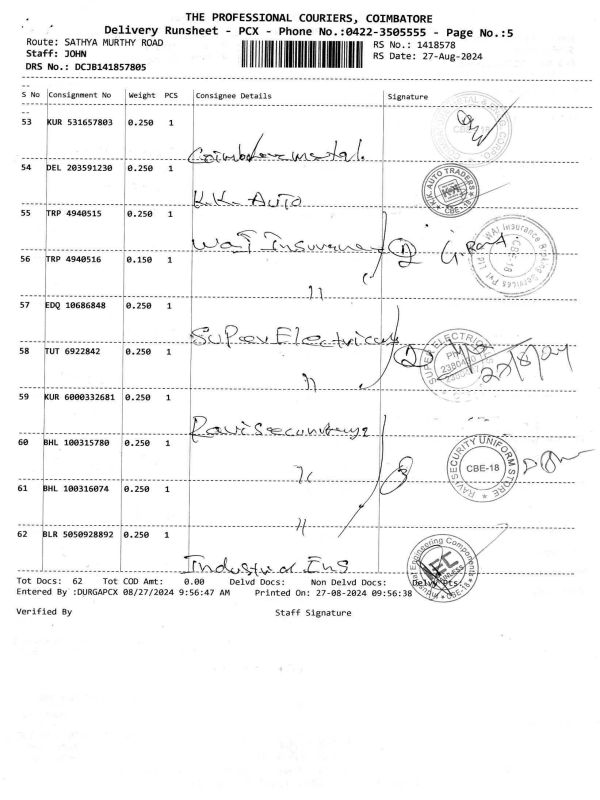 THE PROFESSIONAL COURIERS, COIMBATORE
Delivery Runsheet - PCX - Phone No.:0422-3505555 - Page No.:5
Route: SATHYA MURTHY ROAD
RS No.: 1418578
Staff: JOHN
RS Date: 27-Aug-2024
DRS No.: DCJB141857805
S No Consignment No Weight PCS Consignee Details Signature
53 KUR 531657803 0.250 1
CBE-18
54 DEL 203591230 0.250 1
K.K. Auto
K.K. AUTO TRADERS CBE-18
55 TRP 4940515 0.250 1
Insurance Broking Services Pvt Ltd CBE-18
56 TRP 4940516 0.150 1
"
57 EDQ 10686848 0.250 1
Super Electricals
58 TUT 6922842 0.250 1
SUPER ELECTRIC
27/8/24
"
59 KUR 6000332681 0.250 1
60 BHL 100315780 0.250 1
RAVI SECURITY UNIFORM STORE CBE-18
"
61 BHL 100316074 0.250 1
"
62 BLR 5050928892 0.250 1
Engineering Components CBE-18
Tot Docs: 62 Tot COD Amt: 0.00 Delvd Docs: Non Delvd Docs: Delvy Pts:
Entered By :DURGAPCX 08/27/2024 9:56:47 AM Printed On: 27-08-2024 09:56:38
Verified By Staff Signature